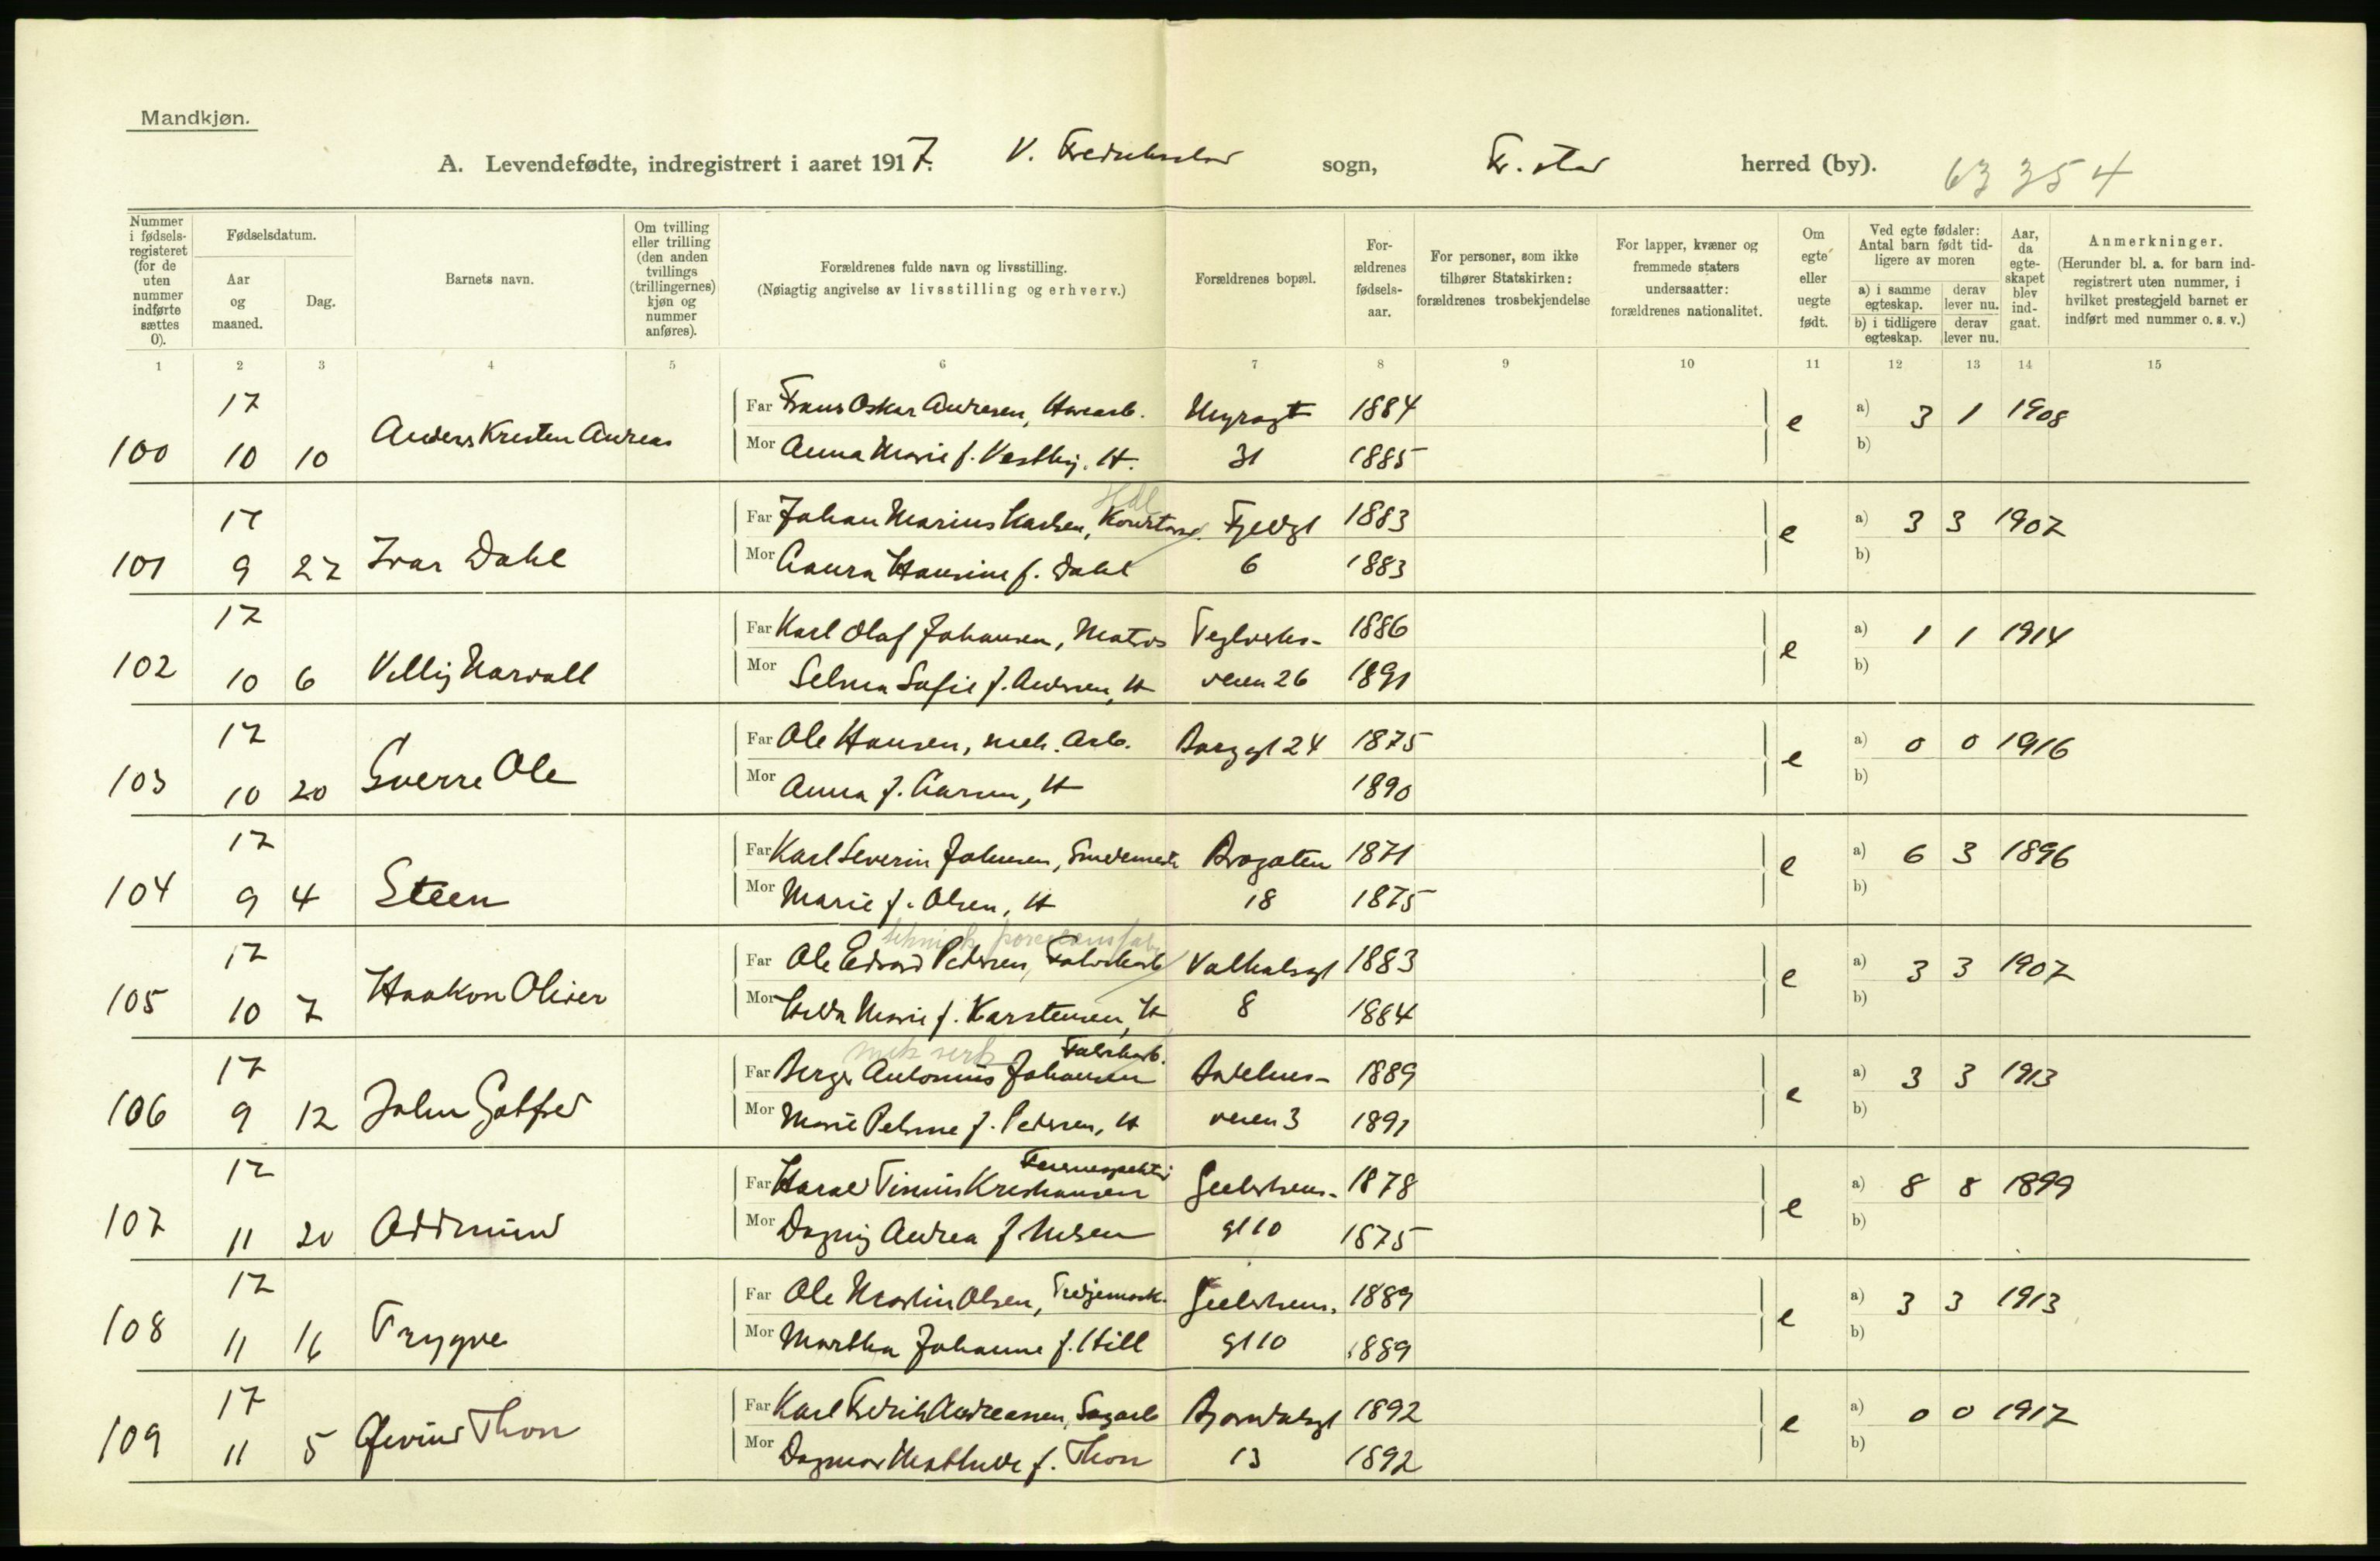 Mandkjøn.
A. Levendefødte, indregistrert i aaret 1917. V. sogn, Fr.stad herred (by). 63 354
Nummer i fødsels-registeret (for de uten nummer indførte sættes 0).
Fødselsdatum.
Aar og maaned.
Dag.
Barnets navn.
Om tvilling eller trilling (den anden tvillings (trillingernes) kjøn og nummer anføres).
Forældrenes fulde navn og livsstilling.
(Nøiagtig angivelse av livsstilling og erhverv.)
Forældrenes bopæl.
For-ældrenes fødsels-aar.
For personer, som ikke tilhører Statskirken: forældrenes trosbekjendelse
For lapper, kvæner og fremmede staters undersaatter: forældrenes nationalitet.
Om egte eller uegte født.
Ved egte fødsler: Antal barn født tid-ligere av moren
a) i samme egteskap. derav lever nu.
b) i tidligere egteskap. derav lever nu.
Aar, da egte-skapet blev ind-gaat.
Anmerkninger.
(Herunder bl. a. for barn ind-registrert uten nummer, i hvilket prestegjeld barnet er indført med nummer o. s. v.)
1 2 3 4 5 6 7 8 9 10 11 12 13 14 15
17 Far Frans Oskar Andresen, Havearb. 1884 e a) 3 1 1908
100 10 10 Anders Kresten Andreas Mor Anna Marie f. Vestby, H. 31 1885 b)
17 Far Johan Marius Karlsen, Fjeldgt 1883 e a) 3 3 1907
101 9 27 Ivar Dahl Mor Laura Hansine f. Dahl 6 1883 b)
17 Far Karl Olaf Johansen, Matros Teglverks- 1886 e a) 1 1 1914
102 10 6 Villy Narvall Mor Selma Sofie f. Andersen, H veien 26 1891 b)
17 Far Ole Hansen, mek. Arb. Borggt 24 1875 e a) 0 0 1916
103 10 20 Sverre Ole Mor Anna f. Larsen, H 1890 b)
17 Far Karl Severin Johnsen, Brogaten 1871 e a) 6 3 1896
104 9 4 Steen Mor Marie f. Olsen, H 18 1875 b)
teknisk porcelænsfabr
17 Far Ole Edvard Pedersen, Fabrikarb Valhalsgt 1883 e a) 3 3 1907
105 10 7 Haakon Oliver Mor Hilda Marie f. Karstensen, H 8 1884 b)
mek verk Fabrikarb.
17 Far Berger Antonius Johansen 1889 e a) 3 3 1913
106 9 12 John Gotfred Mor Marie f. Pedersen, H veien 3 1891 b)
17 Far Harald Kristiansen 1878 e a) 8 8 1899
107 11 20 Oddmund Mor Dagny Andrea f. Nilsen gt 10 1875 b)
17 Far Ole Martin Olsen, Tredjemask. 1889 e a) 3 3 1913
108 11 16 Trygve Mor Martha Johanne f. Hill gt 10 1889 b)
17 Far Karl Fredrik Andreassen, Sagarb Bjørndalsgt 1892 e a) 0 0 1917
109 11 5 Øivind Thon Mor Dagmar Mathilde f. Thon 13 1892 b)